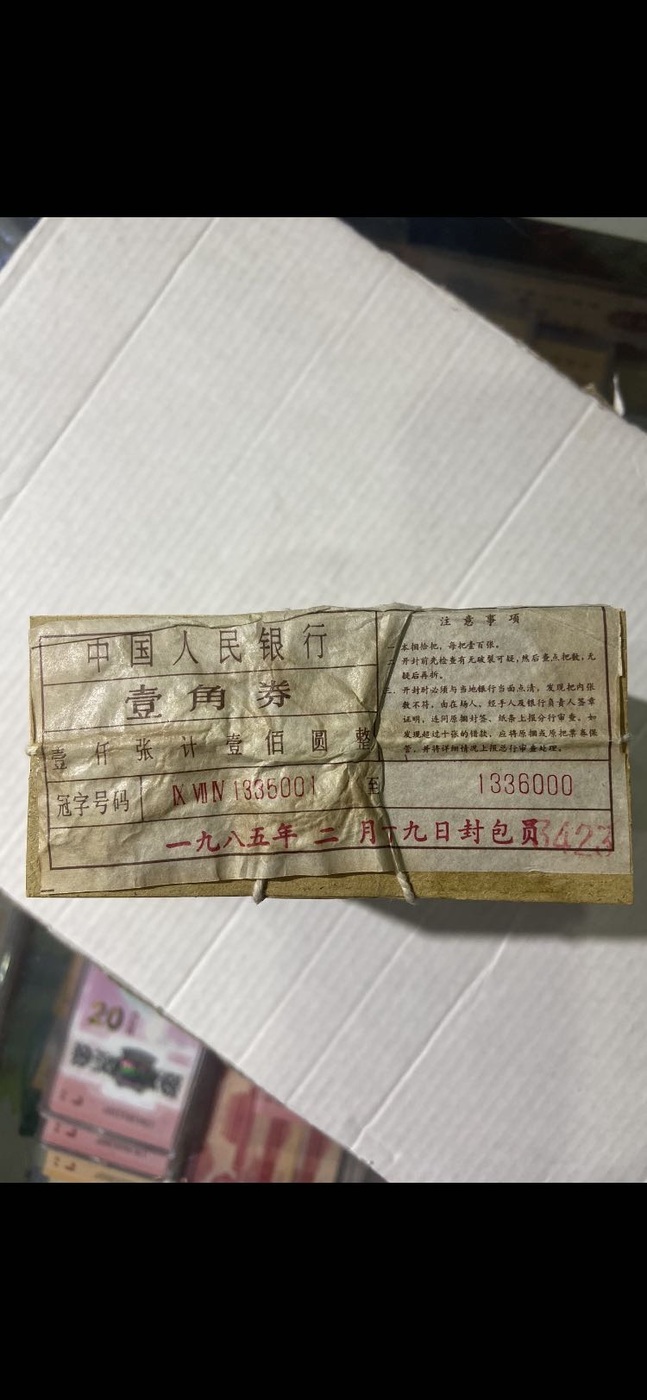 中国人民银行
壹角券
壹仟张计壹佰圆整
冠字号码 IX VII IV 1335001 至 1336000
一九八五年 二 月十九日封包员3423
注意事项
一、本捆拾把,每把壹百张。
二、开封前先检查有无破裂可疑,然后查点把数,无
疑后再拆。
三、开封时必须与当地银行当面点清,发现把内张
数不符,由在场人、经手人及银行负责人签章
证明,连同原捆封签、纸条上报分行审查。如
发现超过十张的错款,应将原捆或原把票券保
管,并将详细情况上报总行审查处理。
20